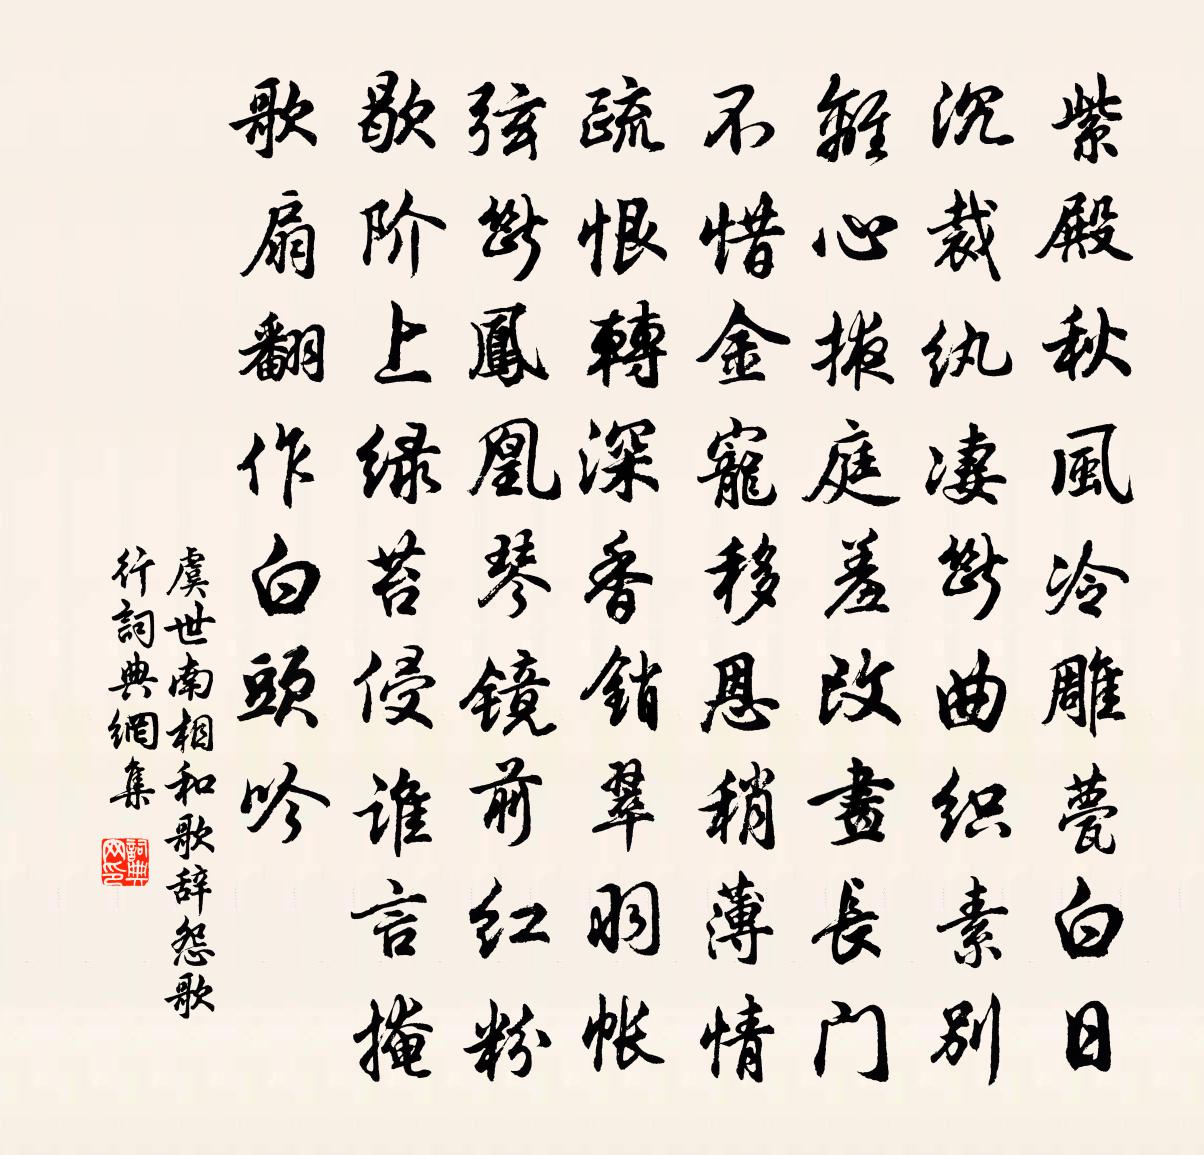 紫殿秋風冷雕甍白日
沉裁纨凄斷曲织素别
離心掖庭羞改畫長门
不惜金寵移恩稍薄情
疏恨轉深香銷翠羽帐
弦斷鳳凰琴镜前红粉
歇阶上绿苔侵谁言掩
歌扇翻作白頭吟
虞世南相和歌辞怨歌
行詞典網集
詞典网印